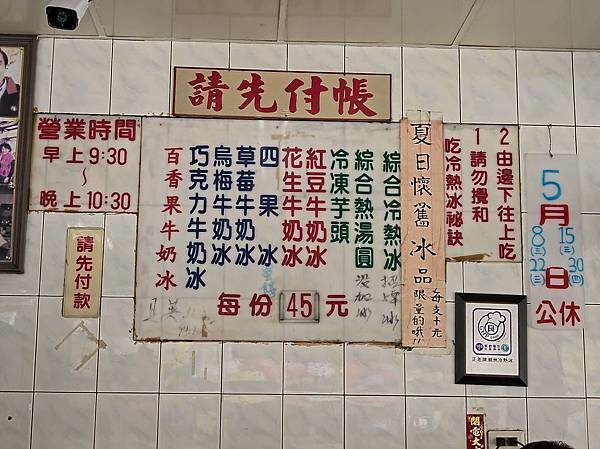 請先付帳
營業時間
早上9:30
～
晚上10:30
請先付款
綜合冷熱冰
綜合熱湯圓
冷凍芋頭
紅豆牛奶冰
花生牛奶冰
四果冰
草莓牛奶冰
烏梅牛奶冰
巧克力牛奶冰
百香果牛奶冰
每份45元
夏日懷舊冰品
每支十元
限量的哦!!
吃冷熱冰祕訣
1 請勿攪和
2 由邊下往上吃
5月
8(三) 15(三)
22(三) 30(四)
日公休
正老牌潮州冷熱冰